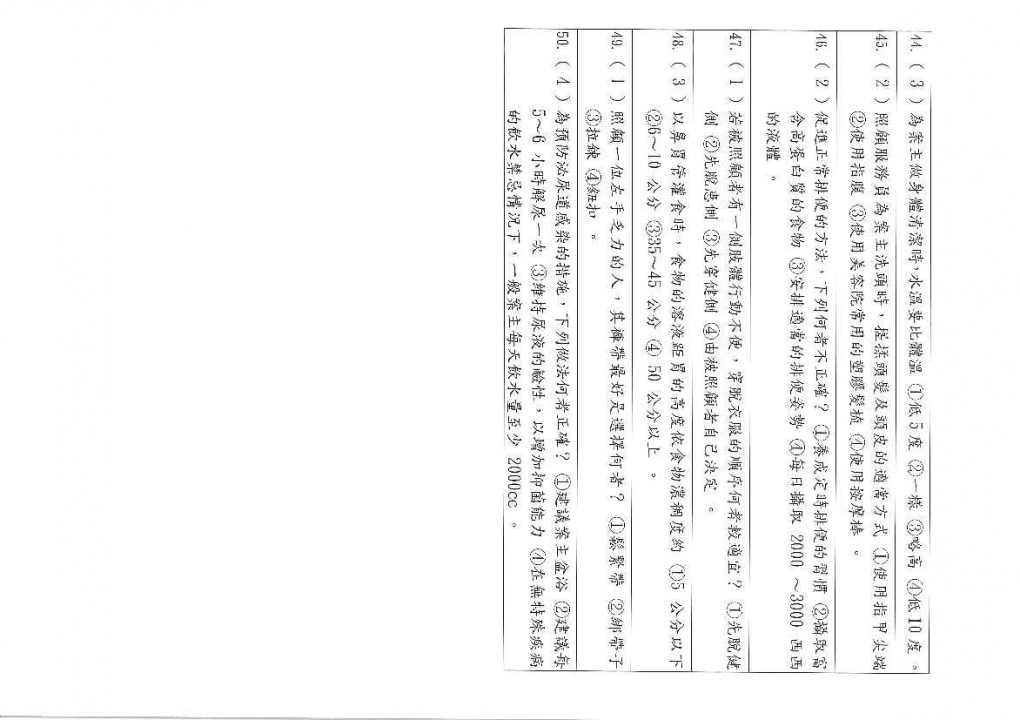 44. ( 3 ) 為案主做身體清潔時，水溫要比體溫 ①低 5 度 ②一樣 ③略高 ④低 10 度 。
45. ( 2 ) 照顧服務員為案主洗頭時，搓揉頭髮及頭皮的適當方式 ①使用指甲尖端
②使用指腹 ③使用美容院常用的塑膠髮梳 ④使用按摩棒 。
46. ( 2 ) 促進正常排便的方法，下列何者不正確？ ①養成定時排便的習慣 ②攝取富
含高蛋白質的食物 ③安排適當的排便姿勢 ④每日攝取 2000 ～3000 西西
的液體 。
47. ( 1 ) 若被照顧者有一側肢體行動不便，穿脫衣服的順序何者較適宜？ ①先脫健
側 ②先脫患側 ③先穿健側 ④由被照顧者自己決定 。
48. ( 3 ) 以鼻胃管灌食時，食物的溶液距胃的高度依食物濃稠度約 ①5 公分以下
②6～10 公分 ③35～45 公分 ④ 50 公分以上 。
49. ( 1 ) 照顧一位左手乏力的人，其褲帶最好是選擇何者？ ①鬆緊帶 ②綁帶子
③拉鍊 ④鈕扣 。
50. ( 4 ) 為預防泌尿道感染的措施，下列做法何者正確？ ①建議案主盆浴 ②建議每
5～6 小時解尿一次 ③維持尿液的鹼性，以增加抑菌能力 ④在無特殊疾病
的飲水禁忌情況下，一般案主每天飲水量至少 2000cc 。